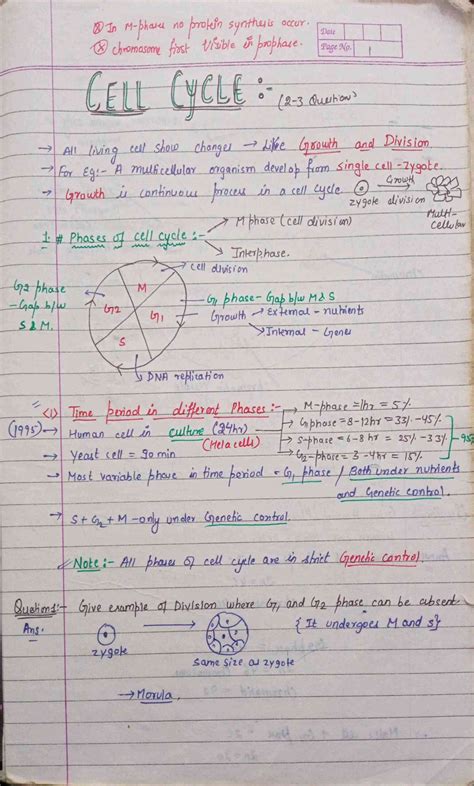 ⊗ In M-phase no protein synthesis occur.
⊗ chromosome first visible in prophase.
Date
Page No. 1
CELL CYCLE :- (2-3 Question)
→ All living cell show changes → Like Growth and Division
→ For Eg:- A multicellular organism develop from single cell - zygote.
→ Growth is continuous process in a cell cycle
Growth
zygote division
Multi-
Cellular
1. # Phases of cell cycle :-
M phase (cell division)
Interphase.
cell division
G2 phase
- Gap b/w
S & M.
M
G2
G1
S
G1 phase - Gap b/w M & S
Growth → External - nutrients
→ Internal - Genes
DNA replication
<1> Time period in different Phases :-
M-phase = 1hr = 5%
(1995) → Human cell in culture (24hr)
(Hela cells)
G1phase = 8-12hr = 33% - 45%
S-phase = 6-8hr = 25% - 33%
G2-phase = 3-4hr = 15%
95%
→ Yeast cell = 90 min
→ Most variable phase in time period = G1 phase / Both under nutrients
and Genetic control.
→ S + G2 + M - only under Genetic control.
Note :- All phases of cell cycle are in strict Genetic control.
Question 1:- Give example of Division where G1 and G2 phase can be absent.
Ans.
{ It undergoes M and S }
zygote
same size as zygote
→ Morula.